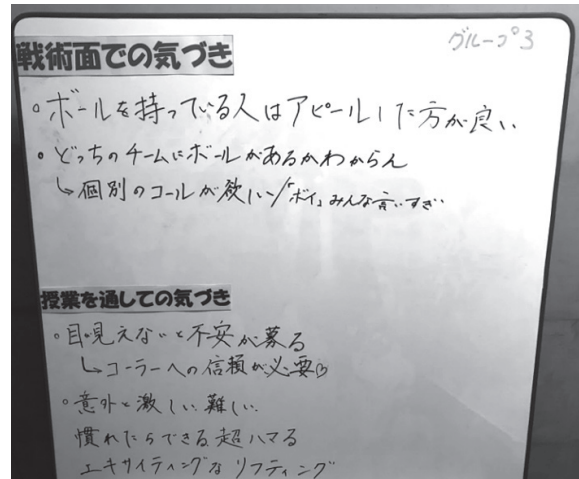 グループ3
戦術面での気づき
・ボールを持っている人はアピールした方が良い
・どっちのチームにボールがあるかわからん
↳個別のコールが欲しい/「ボイ」みんな言いすぎ
授業を通しての気づき
・目見えないと不安が募る
↳コーラーへの信頼が必要♡
・意外と激しい難しい
慣れたらできる超ハマる
エキサイティングなリフティング